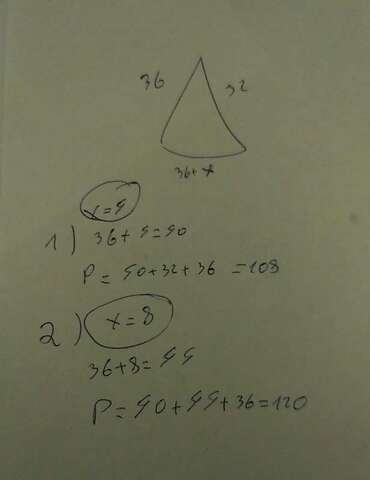 36
32
36+x
x=4
1) 36+4=40
P=40+32+36=108
2) x=8
36+8=44
P=40+44+36=120